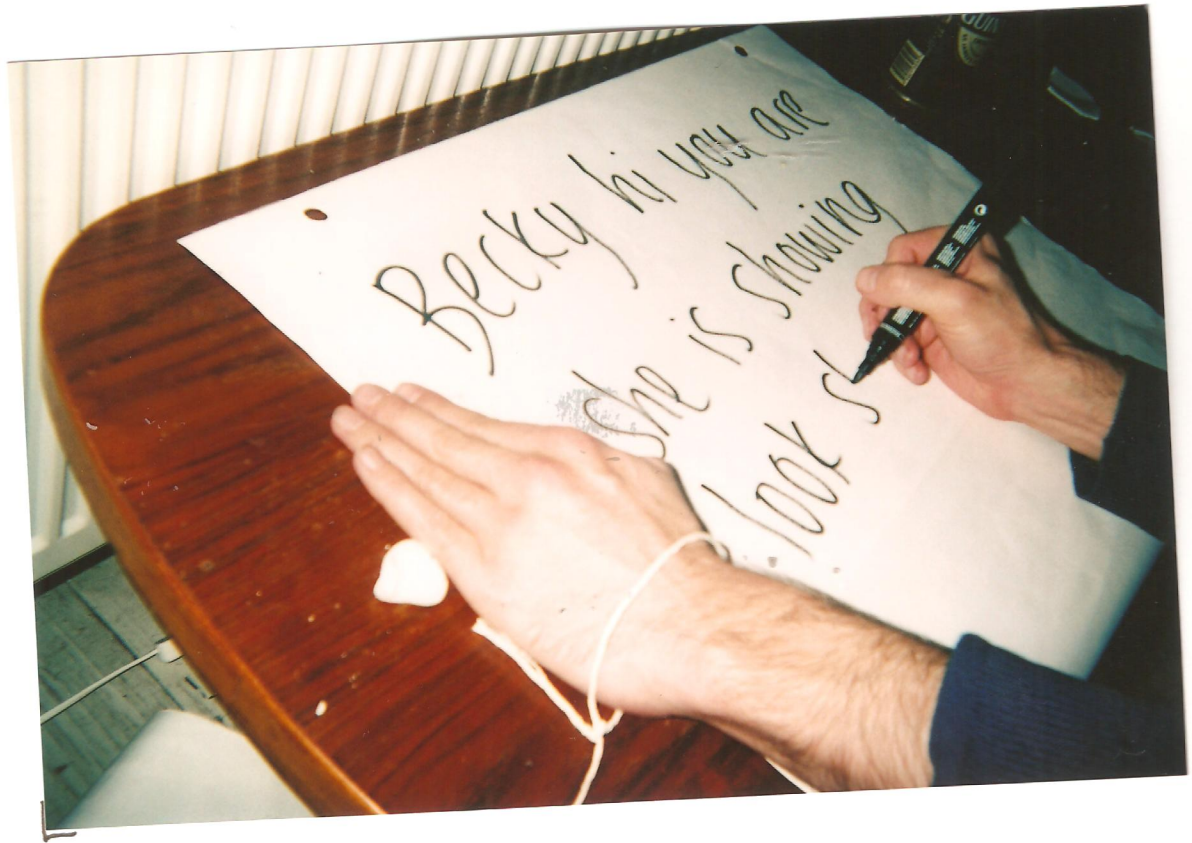 Becky hi you are
She is showing
look s